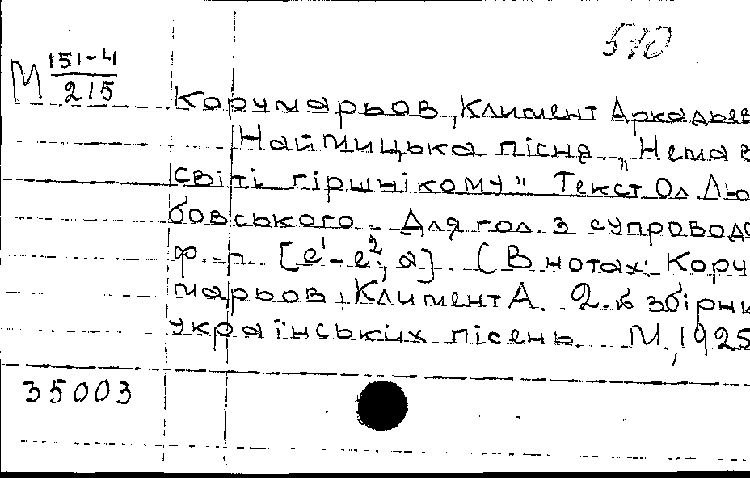 510
М 151-4
215
Корчмарьов, Климент Аркадьев
Наймицька пісня „Нема в
світі гіршнікому" Текст Ол. Лю
бовського. Для гол. з супроводо
ф.-п. [e¹-e², a]. (В нотах: Корч
марьов, Климент А. 2. б збірни
українських пісень. М, 1925
35003